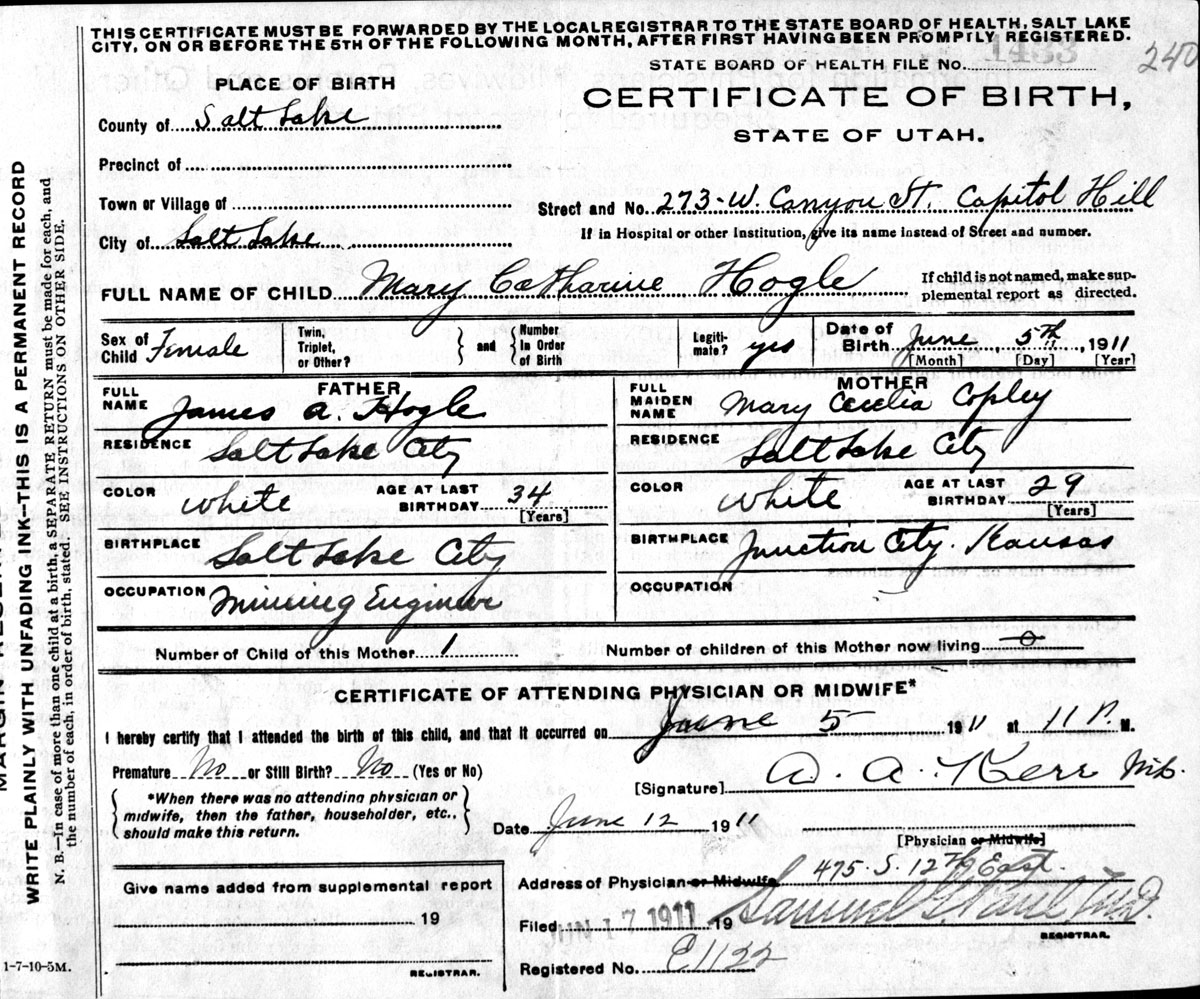 THIS CERTIFICATE MUST BE FORWARDED BY THE LOCAL REGISTRAR TO THE STATE BOARD OF HEALTH, SALT LAKE
CITY, ON OR BEFORE THE 5TH OF THE FOLLOWING MONTH, AFTER FIRST HAVING BEEN PROMPTLY REGISTERED.
1433
240
STATE BOARD OF HEALTH FILE No.
PLACE OF BIRTH
CERTIFICATE OF BIRTH,
STATE OF UTAH.
County of Salt Lake
Precinct of
Town or Village of
Street and No. 273-W. Canyon St. Capitol Hill
City of Salt Lake
If in Hospital or other Institution, give its name instead of Street and number.
FULL NAME OF CHILD Mary Catharine Hogle
If child is not named, make sup-
plemental report as directed.
Sex of Child Female
Twin, Triplet, or Other?
and
Number In Order of Birth
Legiti-mate? yes
Date of Birth June 5th, 1911
[Month] [Day] [Year]
FATHER
FULL NAME James A. Hogle
MOTHER
FULL MAIDEN NAME Mary Cecelia Copley
RESIDENCE Salt Lake City
RESIDENCE Salt Lake City
COLOR White AGE AT LAST BIRTHDAY 34 [Years]
COLOR White AGE AT LAST BIRTHDAY 29 [Years]
BIRTHPLACE Salt Lake City
BIRTHPLACE Junction City. Kansas
OCCUPATION Mining Engineer
OCCUPATION
Number of Child of this Mother 1
Number of children of this Mother now living 0
CERTIFICATE OF ATTENDING PHYSICIAN OR MIDWIFE*
I hereby certify that I attended the birth of this child, and that it occurred on June 5 1911 at 11 P. M.
Premature No or Still Birth? No (Yes or No)
[Signature] A. A. Kerr M.D.
*When there was no attending physician or
midwife, then the father, householder, etc.,
should make this return.
Date June 12 1911
[Physician or Midwife]
Give name added from supplemental report
19
REGISTRAR.
Address of Physician or Midwife 475 S. 12th East
Filed JUN 17 1911 19 Samuel G. Paul M.D.
REGISTRAR.
Registered No. E1122
1-7-10-5M.
WRITE PLAINLY WITH UNFADING INK—THIS IS A PERMANENT RECORD
N. B.—In case of more than one child at a birth, a SEPARATE RETURN must be made for each, and
the number of each, in order of birth, stated. SEE INSTRUCTIONS ON OTHER SIDE.